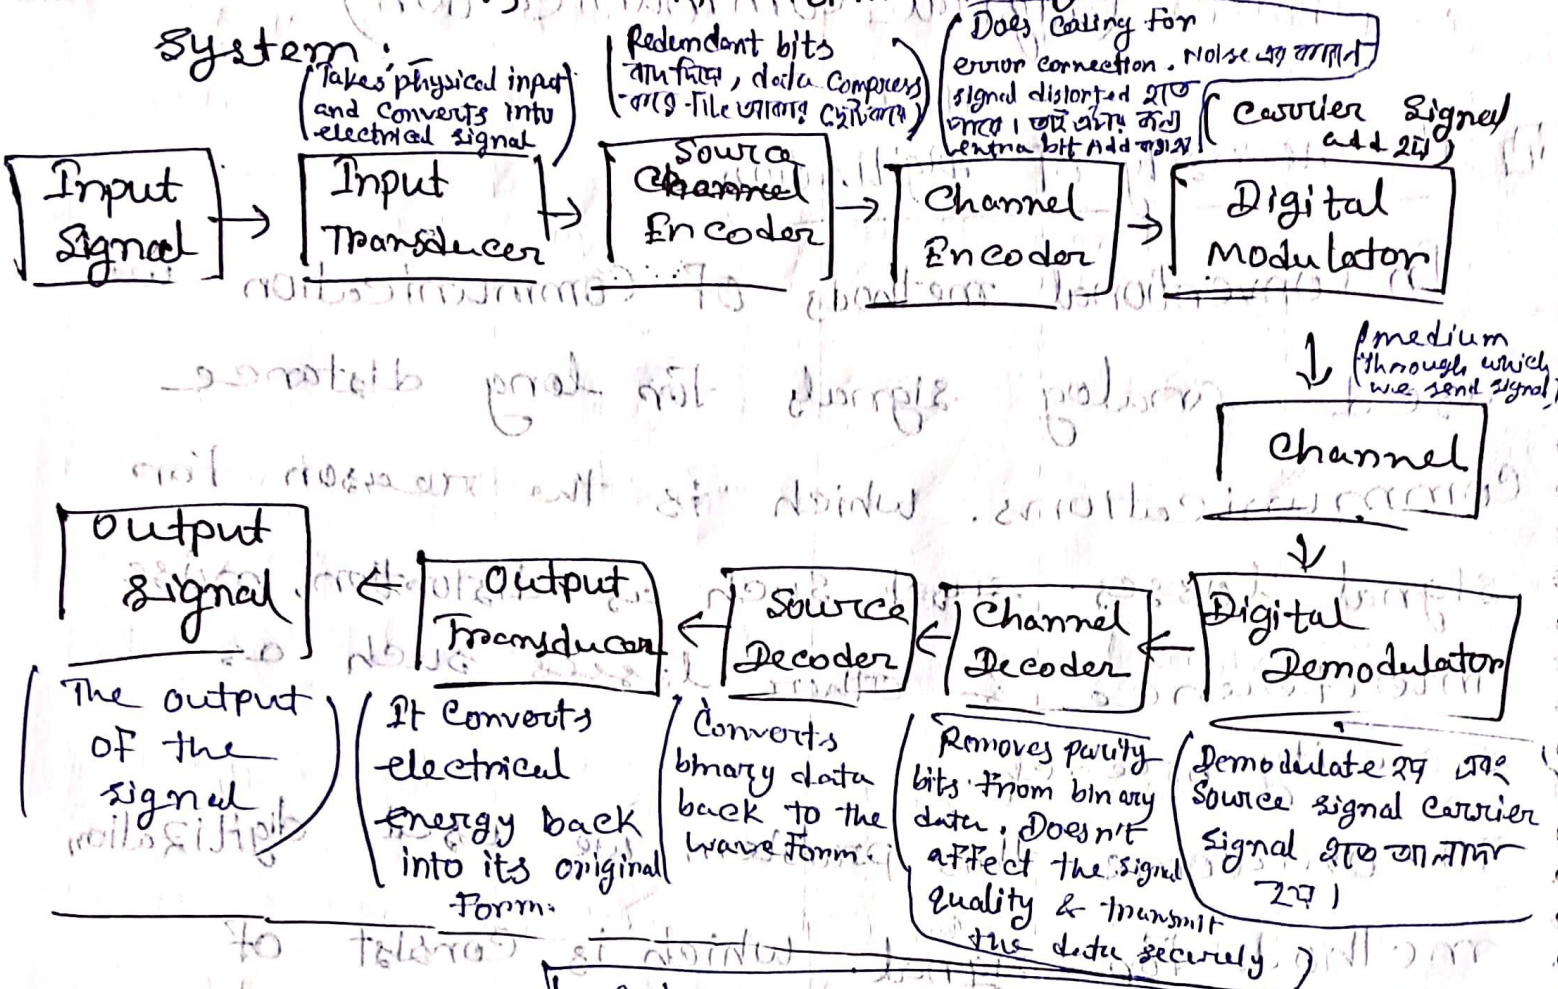 System:
(Takes physical input
and converts into
electrical signal)
(Redundant bits
বাদ দিয়ে, data compress
করে file আকারে
(Does coding for
error connection. Noise এর কারনে
signal distorted হতে
পারে। তাই এটার জন্য
extra bit Add করা হয়
(Carrier signal
add হয়)
Input
Signal
Input
Transducer
Source
Channel
Encoder
Channel
Encoder
Digital
Modulator
(medium
through which
we send signal)
Channel
Output
signal
Output
Transducer
Source
Decoder
Channel
Decoder
Digital
Demodulator
(The output
of the
signal)
(It converts
electrical
energy back
into its original
form.
(Converts
binary data
back to the
wave form.
(Removes parity
bits from binary
data. Doesn't
affect the signal
quality & transmit
the data securely
(Demodulate হয় এবং
Source signal carrier
signal হতে আলাদা
হয়।